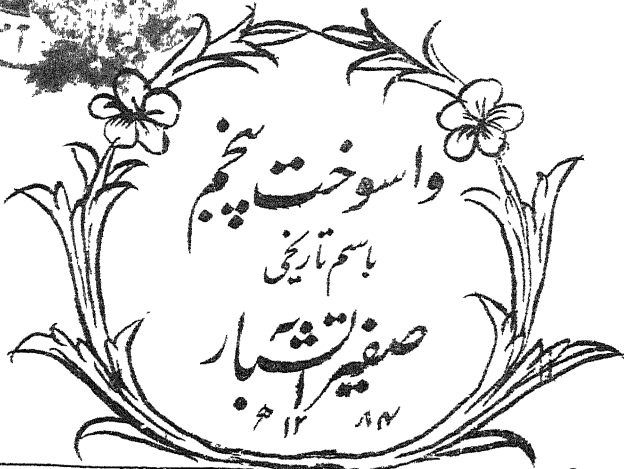 واسوخت پنجم
باسم تاریخی
صفیر آتشبار
۱۲۸۴ ھ